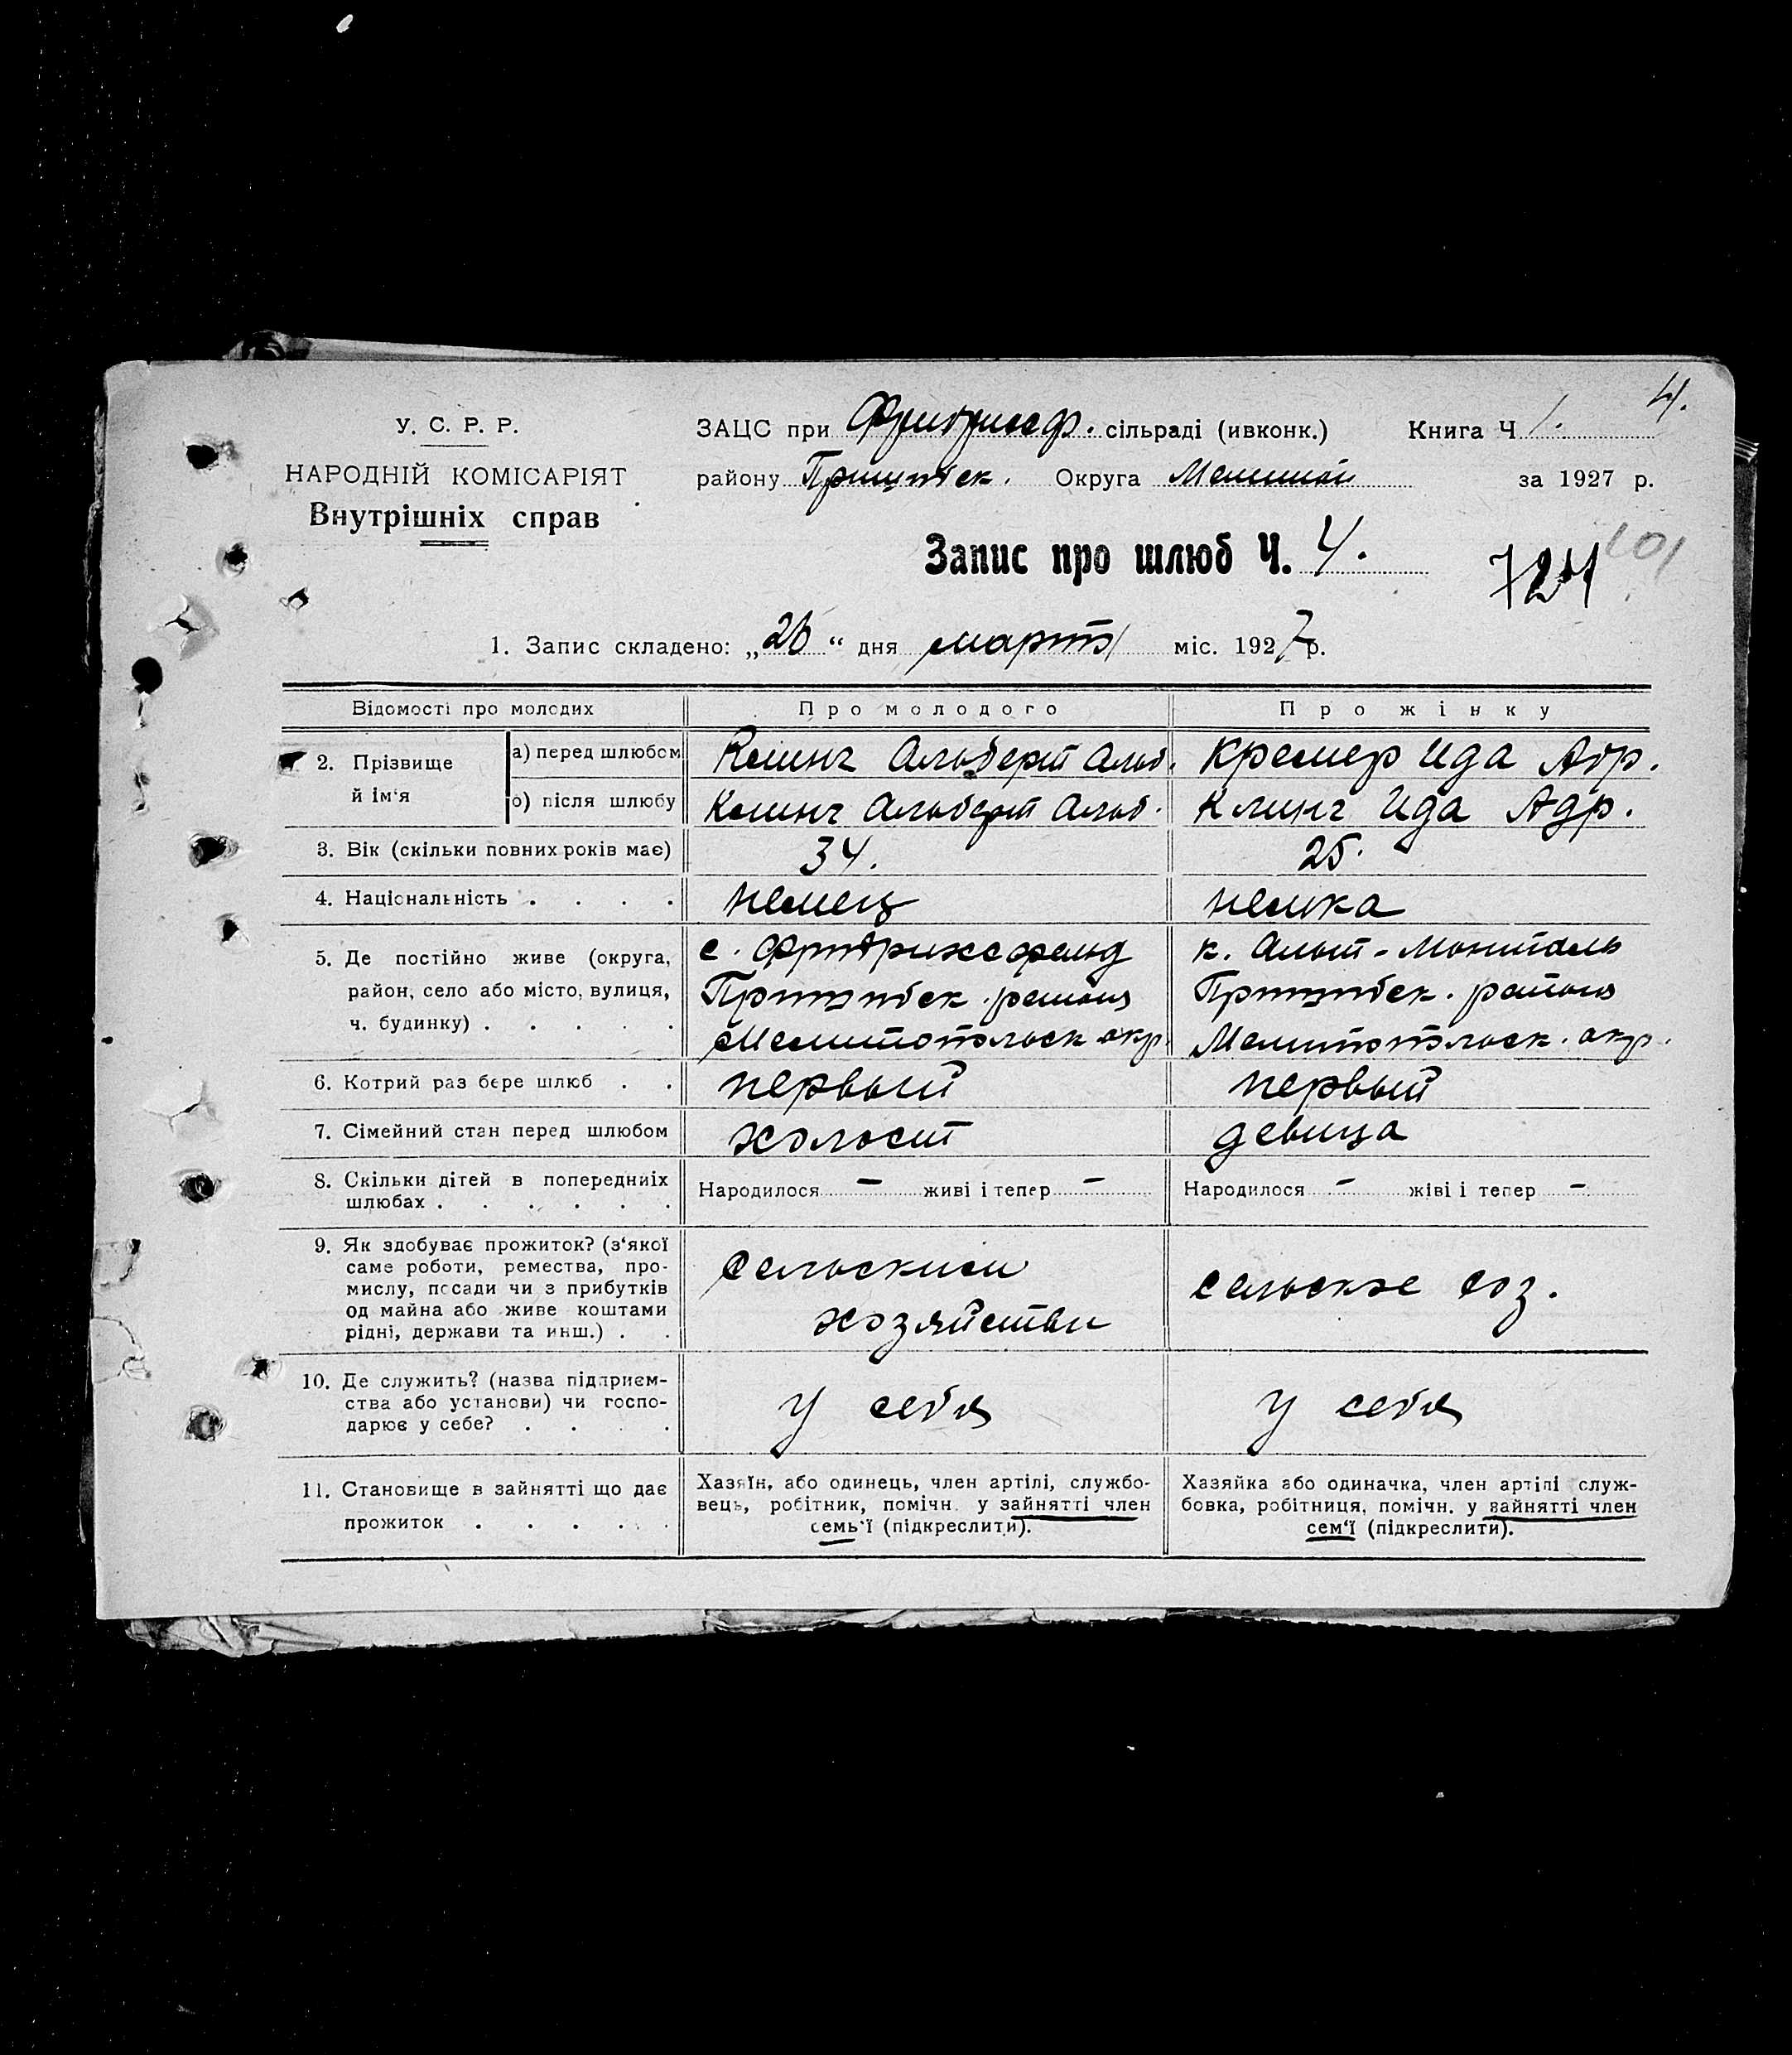 4.
У. С. Р. Р.
НАРОДНІЙ КОМІСАРІЯТ
Внутрішніх справ
ЗАЦС при Фридрихсф. сільраді (ивконк.) Книга Ч 1.
району Пришибск. Округа Мелитоп за 1927 р.
Запис про шлюб Ч. 4.
101
724
1. Запис складено: „26“ дня марта міс. 1927 р.
Відомості про молодих Про молодого Про жінку
2. Прізвище й ім'я
а) перед шлюбом Клинг Альберт Альб. Кремер Ида Адр.
б) після шлюбу Клинг Альберт Альб. Клинг Ида Адр.
3. Вік (скільки повних років має) 34. 25.
4. Національність . . . . немец немка
5. Де постійно живе (округа, с. Фридрихсфельд к. Альт-Монталь
район, село або місто, вулиця, Пришибск. района Пришибск. района
ч. будинку) . . . . . Мелитопольск окр. Мелитопольск. окр.
6. Котрий раз бере шлюб . . первый первый
7. Сімейний стан перед шлюбом холост девица
8. Скільки дітей в попередніх
шлюбах . . . . . . Народилося — живі і тепер — Народилося — жіві і тепер —
9. Як здобуває прожиток? (з'якої
саме роботи, ремества, про-
мислу, посади чи з прибутків
од майна або живе коштами
рідні, держави та инш.) . .
сельским
хозяйством
сельское хоз.
10. Де служить? (назва підприєм-
ства або установи) чи госпо-
дарює у себе? . . . .
у себя у себя
11. Становище в зайнятті що дає
прожиток . . . . .
Хазяїн, або одинець, член артілі, службо-
вець, робітник, помічн. у зайнятті член
семь'ї (підкреслити).
Хазяйка або одиначка, член артілі служ-
бовка, робітниця, помічн. у зайнятті член
сем'ї (підкреслити).